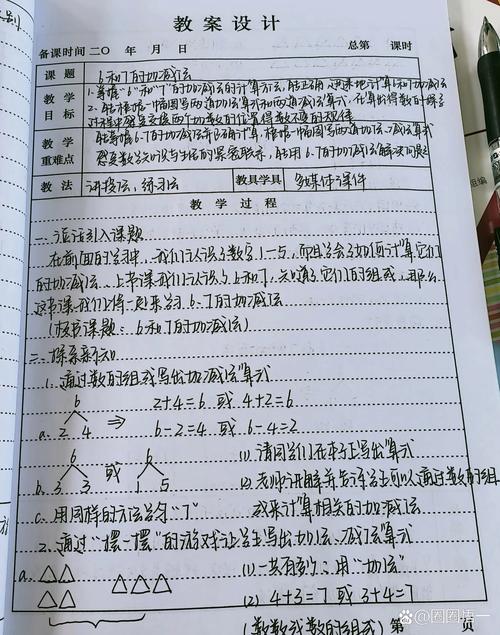 教案设计
备课时间二〇 年 月 日 总第 课时
课题 6和7的加减法
教学目标 1.掌握“6”和“7”的加减法的计算方法,能正确迅速地计算6和7加减法
2.能根据一幅图写两道加法算式和两道减法算式,在算出得数的
过程中感受交换两个加数的位置得数不变的规律
教学重难点 能掌握6.7的加减法并正确计算,根据一幅图写两道加法、减法算式
感受数学知识与生活的紧密联系,能用6.7的加减法解决问题
教法 讲授法,练习法 教具学具 多媒体课件
教学过程
一、谈话引入课题
在前面的学习中,我们认识了数字1—5,而且学会了如何计算它们
的加减法。上节课我们认识了6和7,知道了它们的组成,那么
这节课我们将一起来学习6、7的加减法
(板书课题:6和7的加减法)
二、探索新知
1.通过数的组成写出加减法算式
6 2+4=6 或 4+2=6
a. 2 4 ⇒ 6-2=4 或 6-4=2
6 或 6 (1) 请同学们在本子上写出算式
b. 3 3 1 5 (2) 老师讲解并告诉学生可以通过数的组
成来计算相关的加减法
c. 用同样的方法学习“7”
2、通过“摆一摆”的游戏让学生写出加法、减法算式
a. (1) 一共有到:用“加法”
(2) 4+3=7 或 3+4=7
(数数或数的组成) 第 页
@圈圈悟一